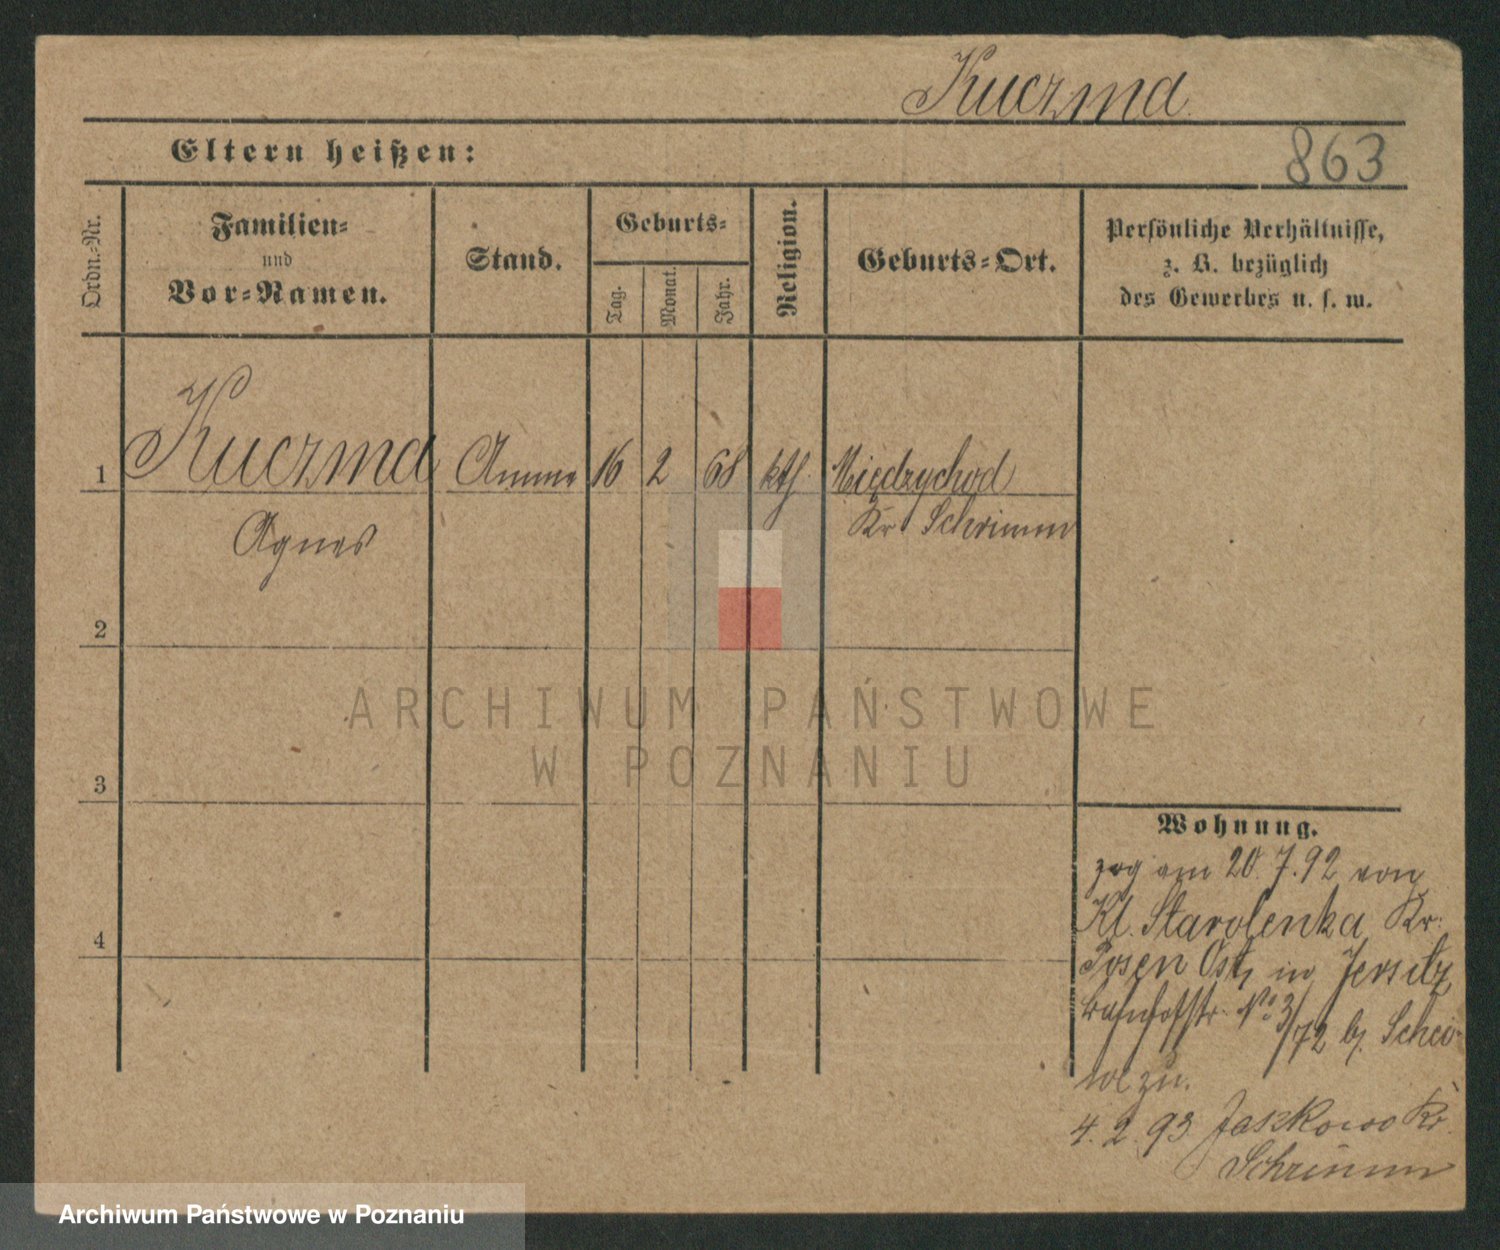 Kuczma
Eltern heißen:
863
Ordn.-Nr.
Familien-
und
Vor-Namen.
Stand.
Geburts-
Tag.
Monat.
Jahr.
Religion.
Geburts-Ort.
Persönliche Verhältnisse,
z. B. bezüglich
des Gewerbes u. s. w.
1 Kuczma Amme 16 2 68 kth. Międzychod
Agnes Kr Schrimm
2
ARCHIWUM PAŃSTWOWE
W POZNANIU
3
4
Wohnung.
zog am 20.7.92 von
Kl. Starolenka Kr.
Posen Ost, in Jersitz
Bahnhofstr. No 3/72 b.
zu.
4.2.93 Jaszkowo Kr.
Schrimm
Archiwum Państwowe w Poznaniu